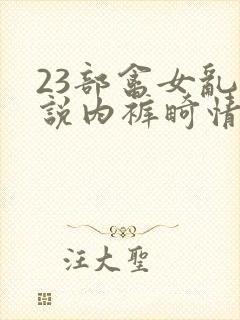 23部畜女亂
説内裤畸情
汪大聖